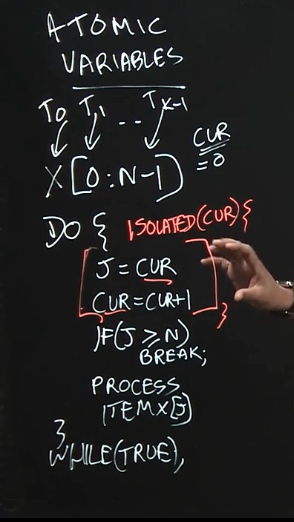 ATOMIC
VARIABLES
T0 T1 .. TK-1
CUR
= 0
X[0:N-1)
DO { ISOLATED(CUR){
J = CUR
CUR=CUR+1
}
IF(J ≥ N)
BREAK;
PROCESS
ITEM X[J]
}
WHILE(TRUE);